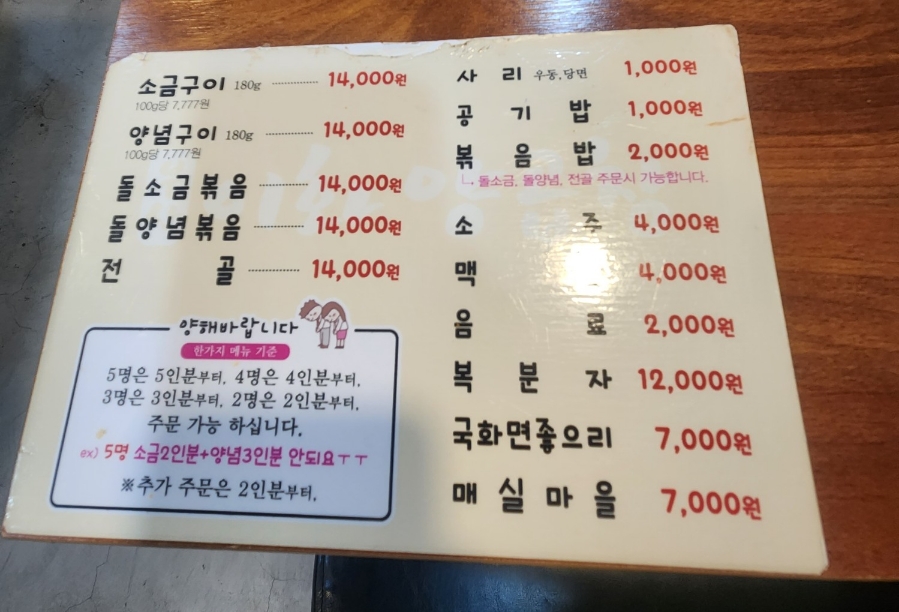 소금구이 180g 14,000원
100g당 7,777원
양념구이 180g 14,000원
100g당 7,777원
돌소금볶음 14,000원
돌양념볶음 14,000원
전골 14,000원
양해바랍니다
한가지 메뉴 기준
5명은 5인분부터, 4명은 4인분부터,
3명은 3인분부터, 2명은 2인분부터,
주문 가능 하십니다.
ex) 5명 소금2인분+양념3인분 안되요ㅜㅜ
※추가 주문은 2인분부터,
사리 우동,당면 1,000원
공기밥 1,000원
볶음밥 2,000원
돌소금, 돌양념, 전골 주문시 가능합니다.
소주 4,000원
맥 4,000원
음료 2,000원
복분자 12,000원
국화면좋으리 7,000원
매실마을 7,000원